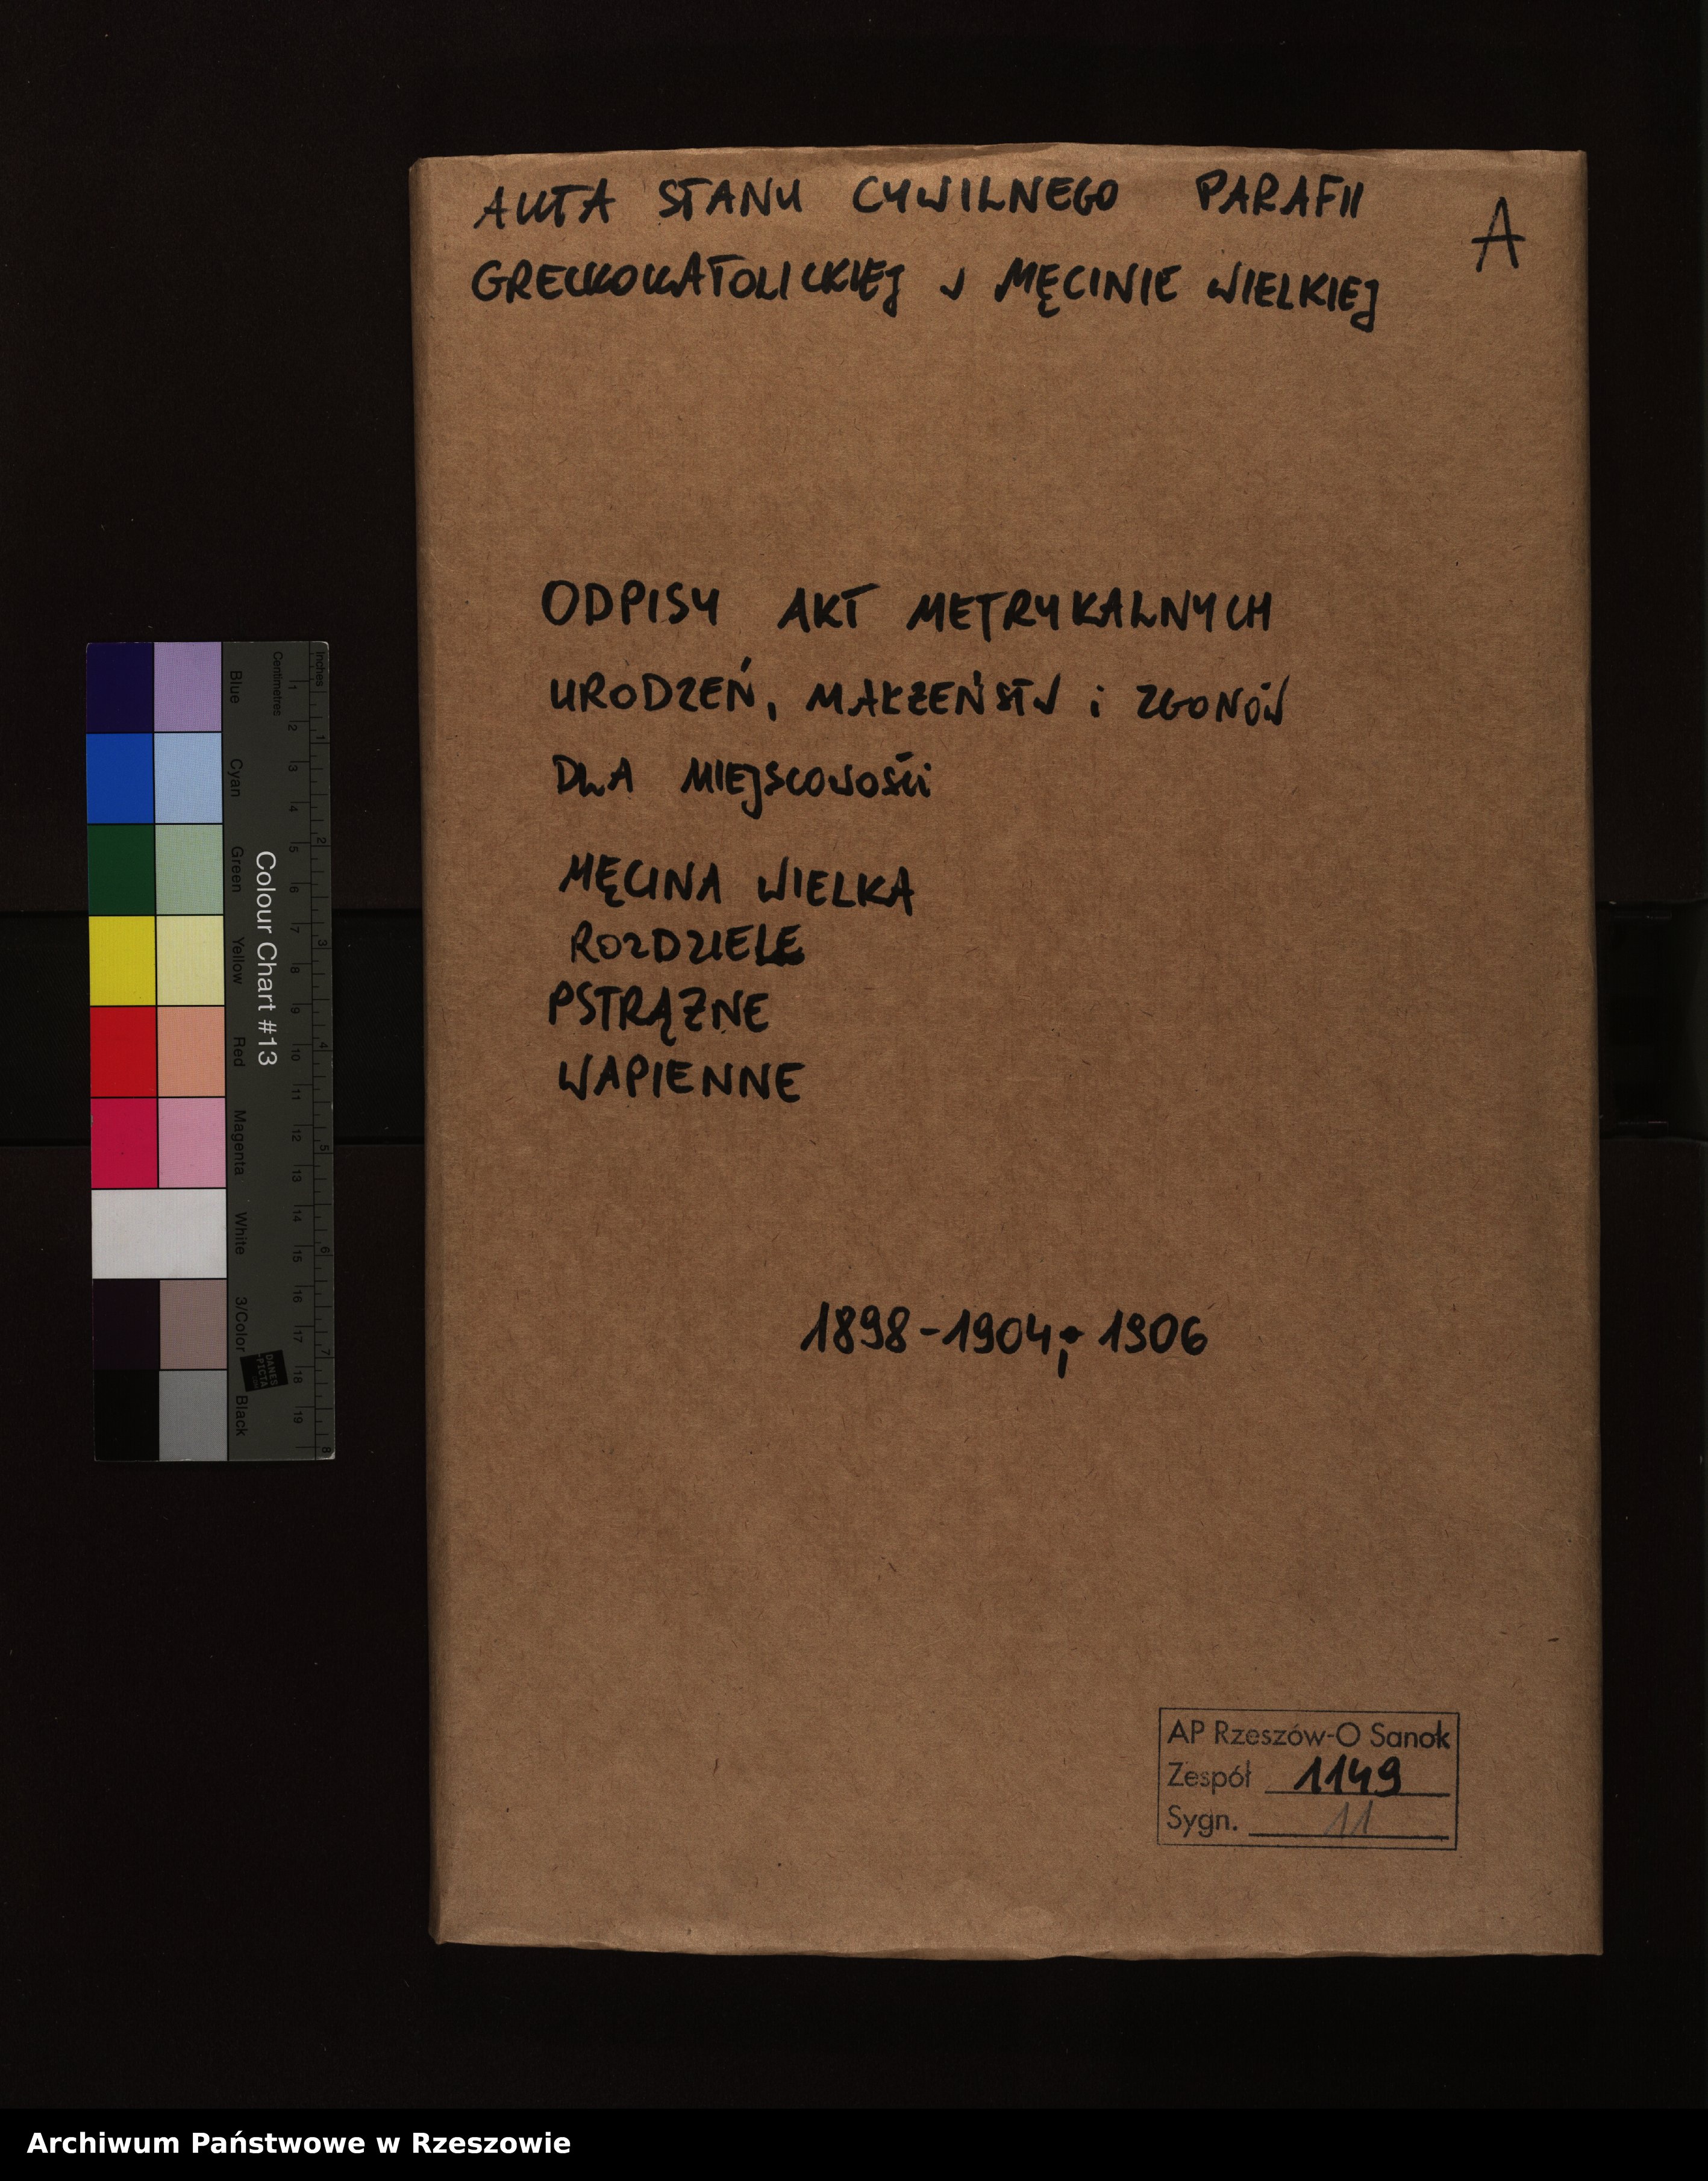 AKTA STANU CYWILNEGO PARAFII
A
GRECKOKATOLICKIEJ W MĘCINIE WIELKIEJ
ODPISY AKT METRYKALNYCH
URODZEŃ, MAŁŻEŃSTW i ZGONÓW
DLA MIEJSCOWOŚCI
MĘCINA WIELKA
ROZDZIELE
PSTRĄŻNE
WAPIENNE
1898-1904; 1906
AP Rzeszów-O Sanok
Zespół 1149
Sygn. 11
Colour Chart #13
Inches
Centimetres
Blue
Cyan
Green
Yellow
Red
Magenta
White
3/Color
Black
DANES
PICTA
1 2 3 4 5 6 7 8 9 10 11 12 13 14 15 16 17 18 19
1 2 3 4 5 6 7 8
Archiwum Państwowe w Rzeszowie